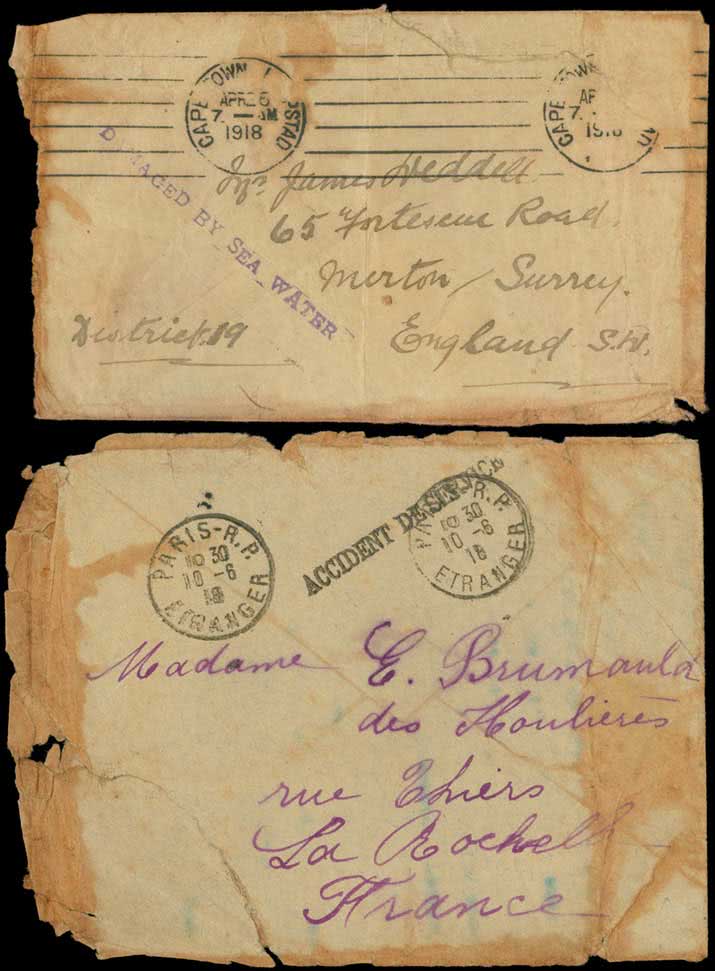 CAPE TOWN
KAAPSTAD
APR 26
7. — AM
1918
CAPE TOWN
AP
7.
1918
DAMAGED BY SEA WATER
Mrs James Weddell
65 Fortescue Road.
Merton, Surrey.
District 19
England S.W.
PARIS-R.P.
18 30
10 -6
18
ETRANGER
ACCIDENT DE SERVICE
PARIS-R.P.
18 30
10 -6
18
ETRANGER
Madame E. Brumauld
des Houlières
rue Thiers
La Rochelle
France